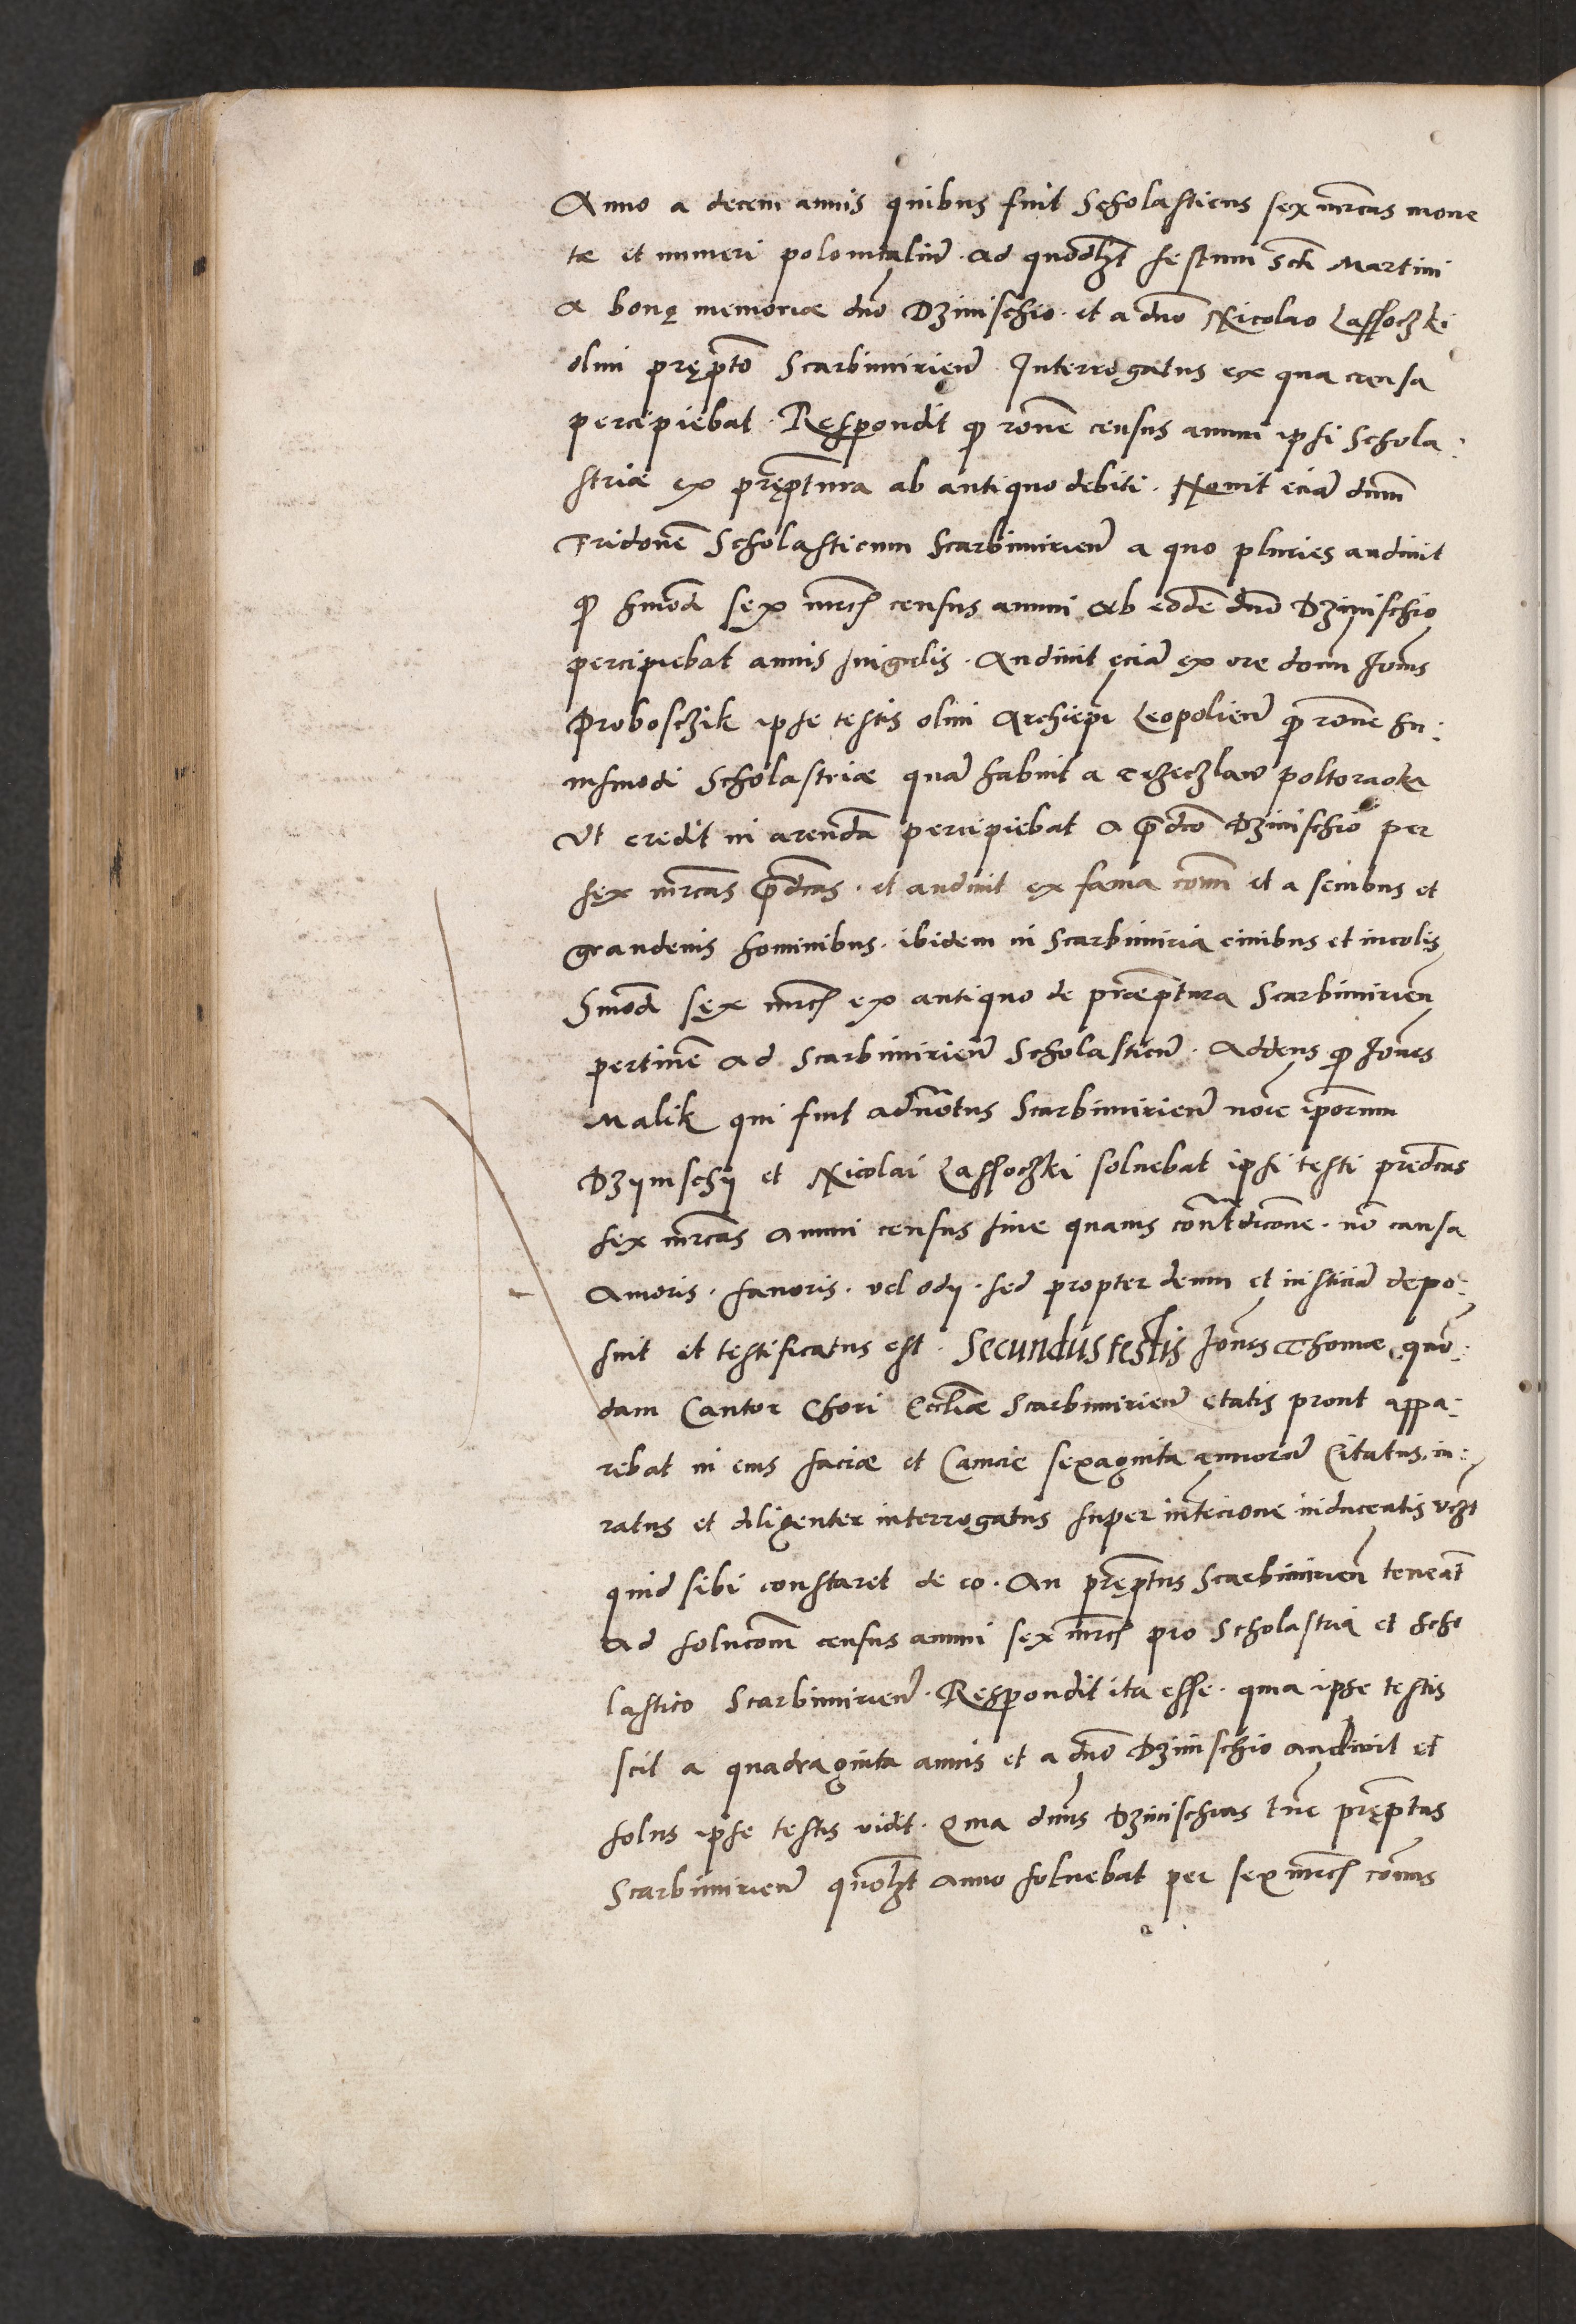 Anno a decem annis quibus fuit Scholasticus sex mrcas mone
tæ et numeri polonicaliũ. Ad quodlʒt festum Scti Martini
A bonę memoriæ dno Dzinischio. et a dno Nicolao Lassoczki
olim pręp̃to Scarbimirieñ Interrogatus ex qua causa
percipiebat. Respondit q̈ rone census annui ipsi Schola:
striæ ex pręp̃tura ab antiquo debiti. Nouit eciã dnm
Fridonẽ Scholasticum Scarbimirieñ a quo pluries audiuit
q̈ hmodi sex mrcs census annui Ab eodẽ dno Dzinischio
percipiebat annis singulis. Audiuit eciã ex ore domi Joñis
Proboszik ipse testis olim Archiepi Leopolieñ q̈ rone hu:
iusmodi Scholastriæ quã habuit a Czeczlao poltoraoka
Ut credit in arendã percipiebat A p̃dcõ Dzinischio per
sex mrcas p̃dcas. et audiuit ex fama coñi et a senibus et
grandeuis hominibus. ibidem in Scarbimiria ciuibus et incolis
Hmodi sex mrcs ex antiquo de præp̃tura Scarbimirieñ
pertineñ Ad Scarbimirieñ Scholasticũ. Addens q̈ Joñes
Malik qui fuit aduocatus Scarbimirieñ noĩe ip̃orum
Dzijnschij et Nicolai Lassoczki soluebat ipsi testi prędcas
sex mrcas Annui census sine quauis contradicone. nõ causa
Amoris. fauoris. vel odij. sed propter deum et iusticiã depo:
suit et testificatus est. Secundus testis Joñes Thomæ quõ:
dam Cantor Chori Eccliæ Scarbimirieñ etatis prout appa:
rebat in eius faciæ et Canicie sexaginta annorũ Citatus. iu:
ratus et diligenter interrogatus super intẽcione inducentis vʒt
quid sibi constaret de eo. An pręp̃tus Scarbimirieñ teneat̃
Ad solucom census annui sex mrcs pro Scholastria et Scho
lastico Scarbimirieñ. Respondit ita esse. quia ipse testis
scit a quadraginta annis et a dno Dzinischio audiuit et
solus ipse testis vidit. Quia dnus Dzinischius tũc pręp̃tus
Scarbimirieñ quolʒt Anno soluebat per sex mrcs coñis